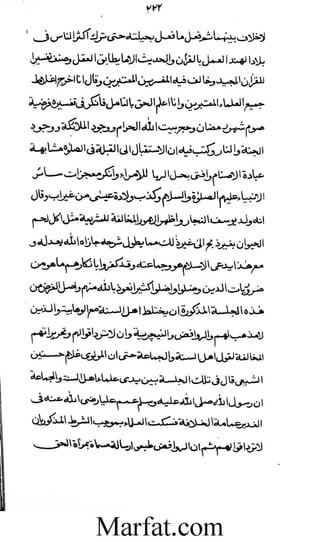 ٢٢٢
لاخلاف بينهما شرفعل ما فعل بحيلته حتى ترك اكثر الناس فى
بلاد الهند العمل بالقرآن والحديث الا ما يطابق العقل وصنف تفسيرا
للقرآن المجيد وخالف فيه المفسرين المعتبرين وقال انا اخرج اغلاط
جميع العلماء المعتبرين وانا اعلم الحق بالتامل فانكر فى تفسيره فرضية
صوم شهر رمضان وحج بيت الله الحرام ووجود الملائكة ووجود
الجنة والنار وكتب فيه ان الاستقبال الى القبلة فى الصلوة مشابهة
عبادة الاصنام وافتى بحل الربا للامراء وانكر معجزات سائر
الانبياء عليهم الصلوة والسلام وكذب ولادة عيسى من غير اب وقال
انه ولد يوسف النجار واظهر الامور المخالفة للشريعة مثل اكل لحم
الحيوان بغير ذبح الى غير ذلك مما يطول شرحه جازاه الله بعدله و
مع هذا يدعى الاسلام هو وجماعته وقد كفروا بانكارهم ما هو من
ضروريات الدين وضلوا واضلوا كثيرا نعوذ بالله منهم واصل الغرض من
هذه الجلسة المذكورة ان يختلط اهل السنة مع الوهابية والذين
لا مذهب لهم والروافض والنيچرية وان لا ترد اقوالهم وتحريراتهم
المخالفة لقول اهل السنة والجماعة حتى ان المولوى غلام حسنين
الشيعى قال فى تلك الجلسة بين يدى علماء اهل السنة والجماعة
ان رسول الله صلى الله عليه وسلم عمم عليا رضى الله عنه فى
الغدير عمامة الخلافة فسكت العلماء بموجب الشرط المذكور بان
لا ترد اقوالهم ثم ان الروافض طبعوا رسالة مسماة بمرأة الحق
Marfat.com